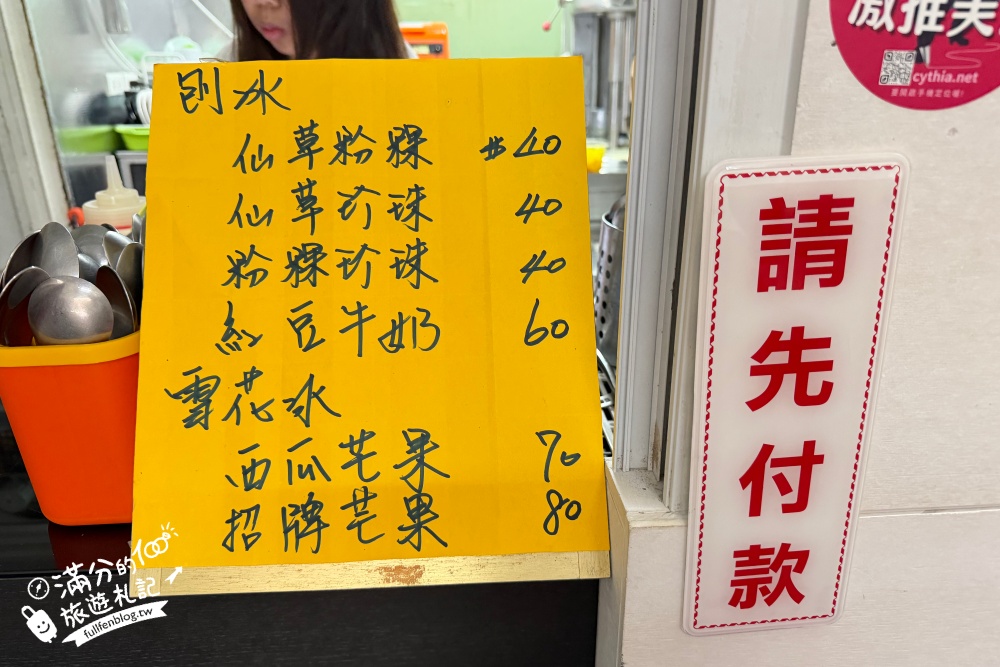 刨冰
仙草粉粿 $40
仙草珍珠 40
粉粿珍珠 40
紅豆牛奶 60
雪花冰
西瓜芒果 70
招牌芒果 80
請先付款
激推美
cythia.net
滿分的
旅遊札記
fullfenblog.tw